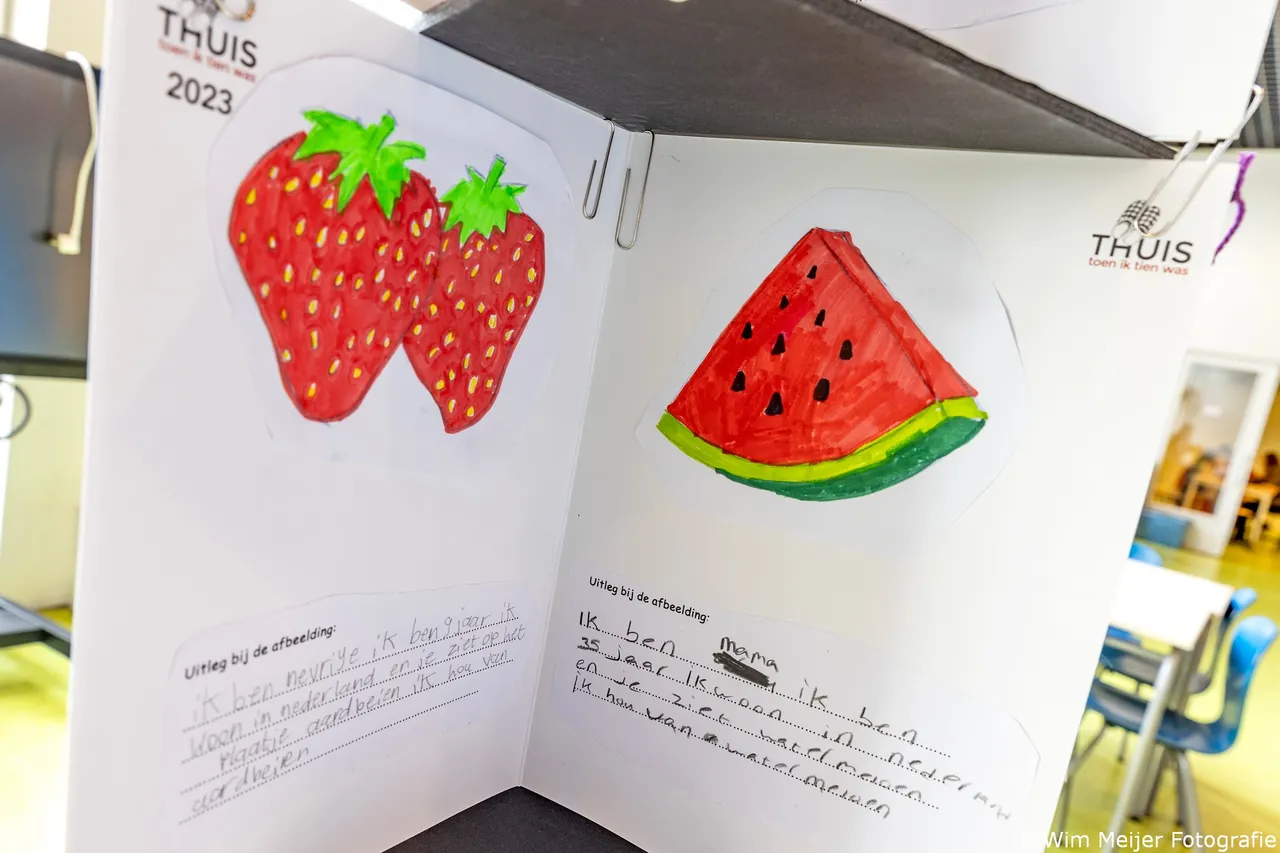 THUIS
toen ik tien was
2023
Uitleg bij de afbeelding:
ik ben nevriye ik ben 9 jaar ik
woon in nederland en je ziet op het
plaatje aardbeien ik hou van
aardbeien
THUIS
toen ik tien was
Uitleg bij de afbeelding:
ik ben mama ik ben
35 jaar ik woon in nederland
en je ziet watermeloen
ik hou van watermeloen
Wim Meijer Fotografie